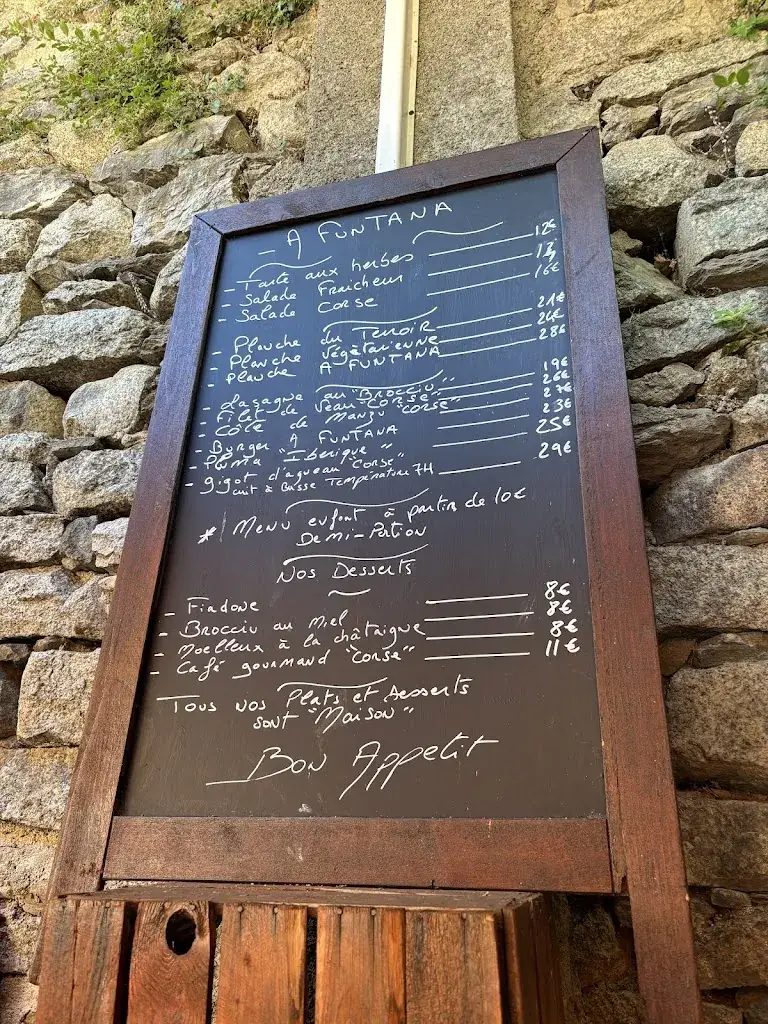 A FUNTANA
- Tarte aux herbes 12€
- Salade Fraicheur 13€
- Salade Corse 16€
- Planche du Terroir 21€
- Planche végètarienne 24€
- Planche A FUNTANA 28€
- Lasagne au "BROCCIU" 19€
- Filet de Veau "CORSE" 26€
- Côte de Manzu "CORSE" 27€
- Burger A FUNTANA 23€
- Pluma "Iberique" 25€
- Gigot d'agneau "Corse" 29€
cuit à Basse Température 7H
* Menu enfant à partir de 10€
Demi-Portion
Nos Desserts
- Fiadone 8€
- Brocciu au Miel 8€
- Moelleux à la châtaigne 8€
- Café gourmand "Corse" 11€
Tous nos Plats et desserts
sont "Maison"
Bon Appetit